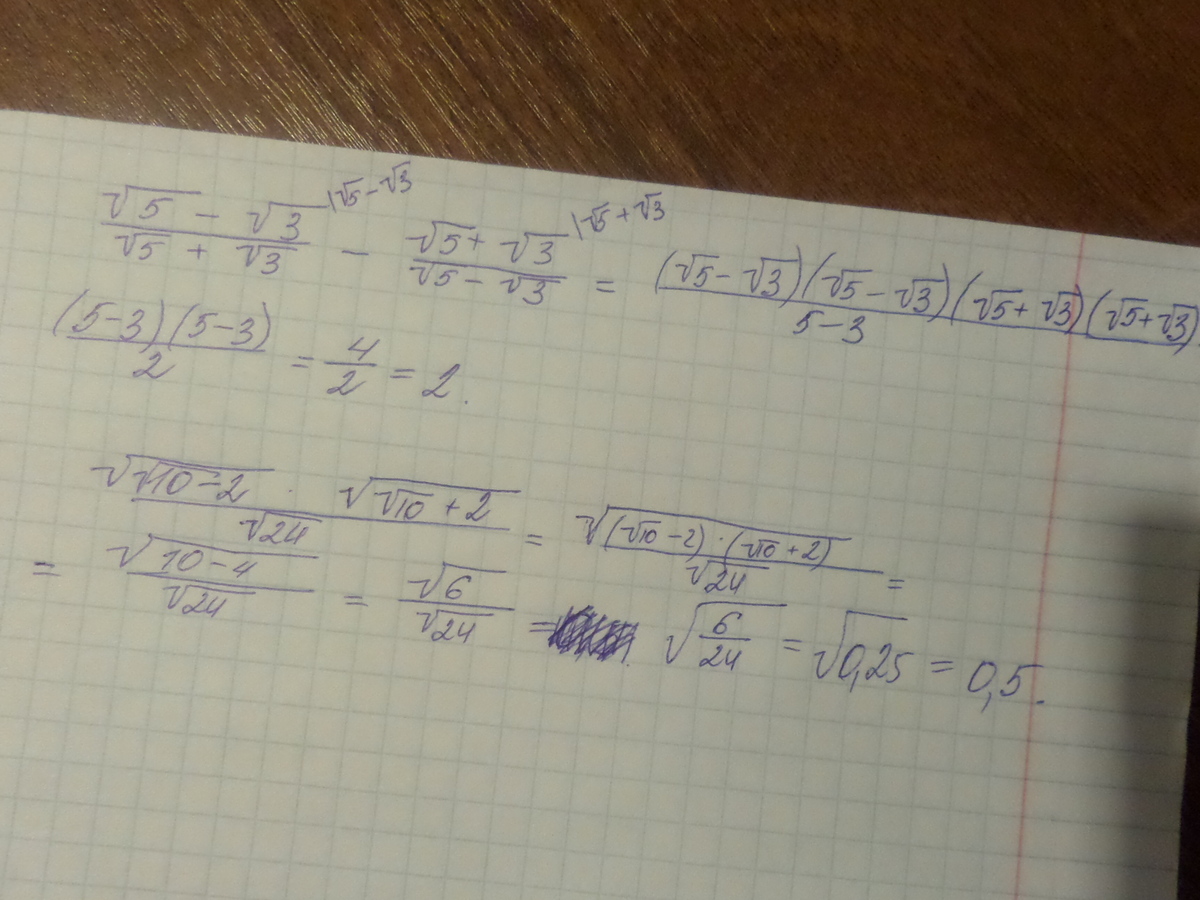 (√5 - √3)/(√5 + √3) |√5-√3 - (√5+ √3)/(√5 - √3) |√5+√3 = (√5-√3)(√5-√3)(√5+√3)(√5+√3)/(5-3)
(5-3)(5-3)/2 = 4/2 = 2.
√(√10-2) · √(√10+2)/√24 = √((√10-2)·(√10+2))/√24 =
= √(10-4)/√24 = √6/√24 = √(6/24) = √0,25 = 0,5.